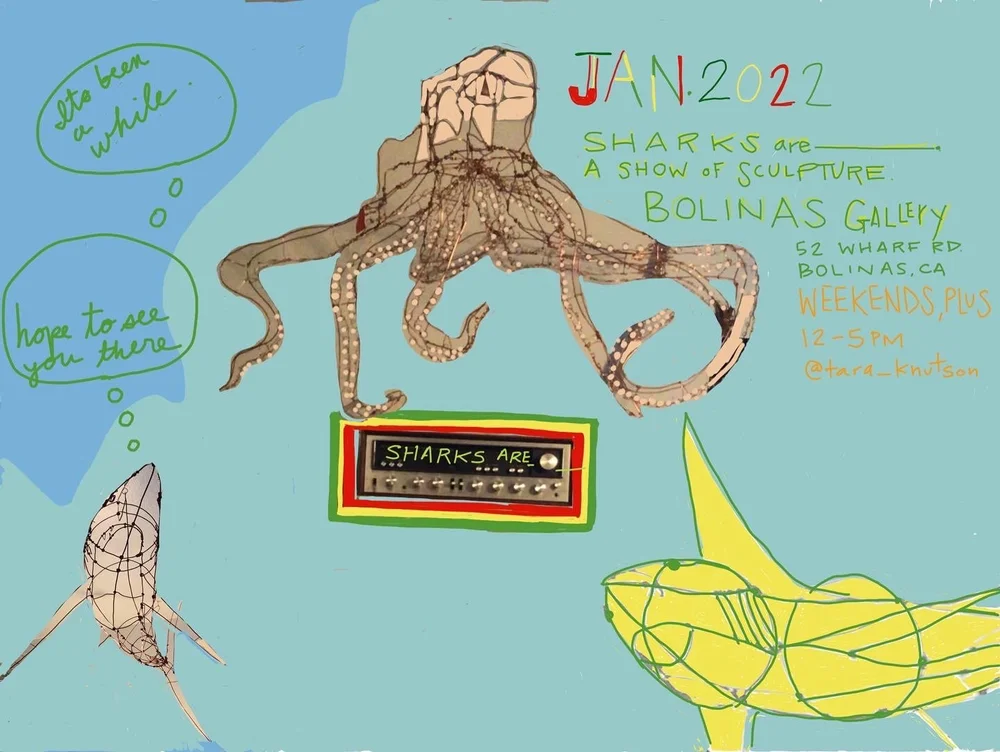 Its been
a
while.
hope to see
you there
JAN.2022
SHARKS are________.
A SHOW OF SCULPTURE.
BOLINAS GALLERY
52 WHARF RD.
BOLINAS, CA
WEEKENDS, PLUS
12-5PM
@tara_knutson
SHARKS ARE_